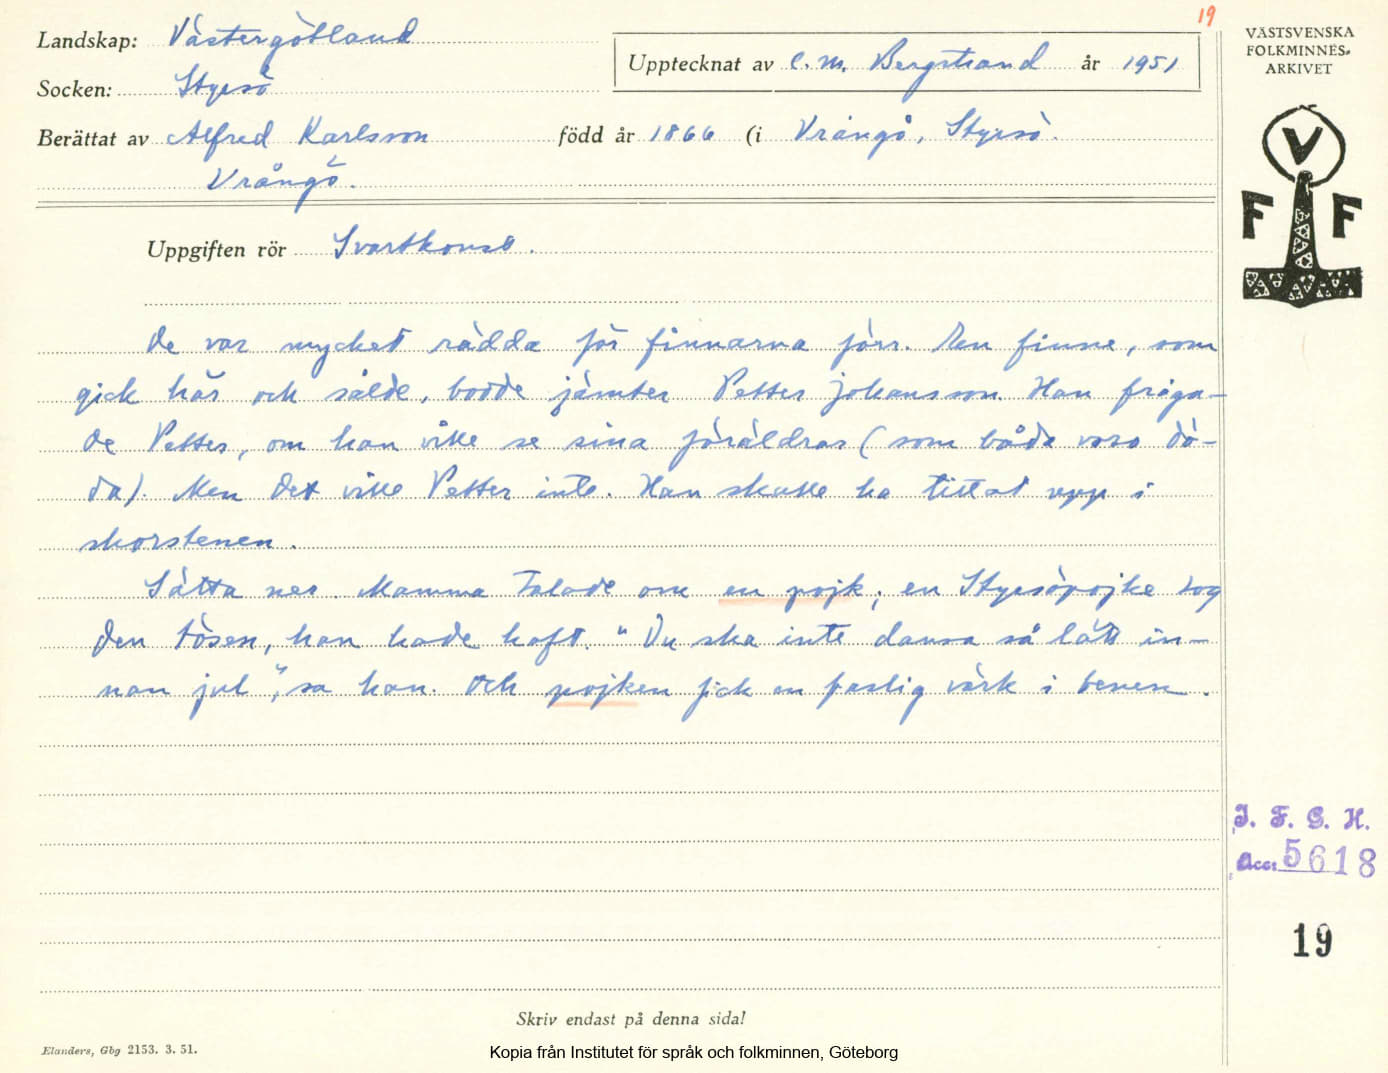 19
Landskap: Västergötland
Upptecknat av C. M. Bergstrand år 1951
Socken: Styrsö
Berättat av Alfred Karlsson född år 1866 (i Vrångö, Styrsö.
Vrångö.
Uppgiften rör Svartkonst.
De var mycket rädda för finnarna förr. En finne, som
gick här och sålde, bodde jämter Petter Johansson. Han fråga-
de Petter, om han ville se sina föräldrar (som båda voro dö-
da). Men det ville Petter inte. Han skulle ha tittat upp i
skorstenen.
Sätta ner. Mamma talade om en pojk; en Styrsöpojke tog
den tösen, han hade haft. "Du ska inte dansa så lätt in-
nan jul", sa han. Och pojken fick en farlig värk i benen.
VÄSTSVENSKA
FOLKMINNES-
ARKIVET
V
F F
I. F. G. H.
Acc: 5618
19
Skriv endast på denna sida!
Elanders, Gbg 2153. 3. 51.
Kopia från Institutet för språk och folkminnen, Göteborg